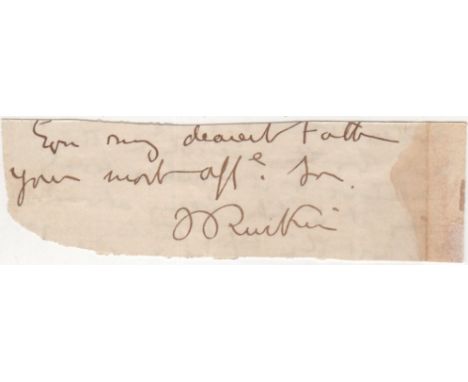 Ever my dearest Father
your most affe. Son.
J Ruskin